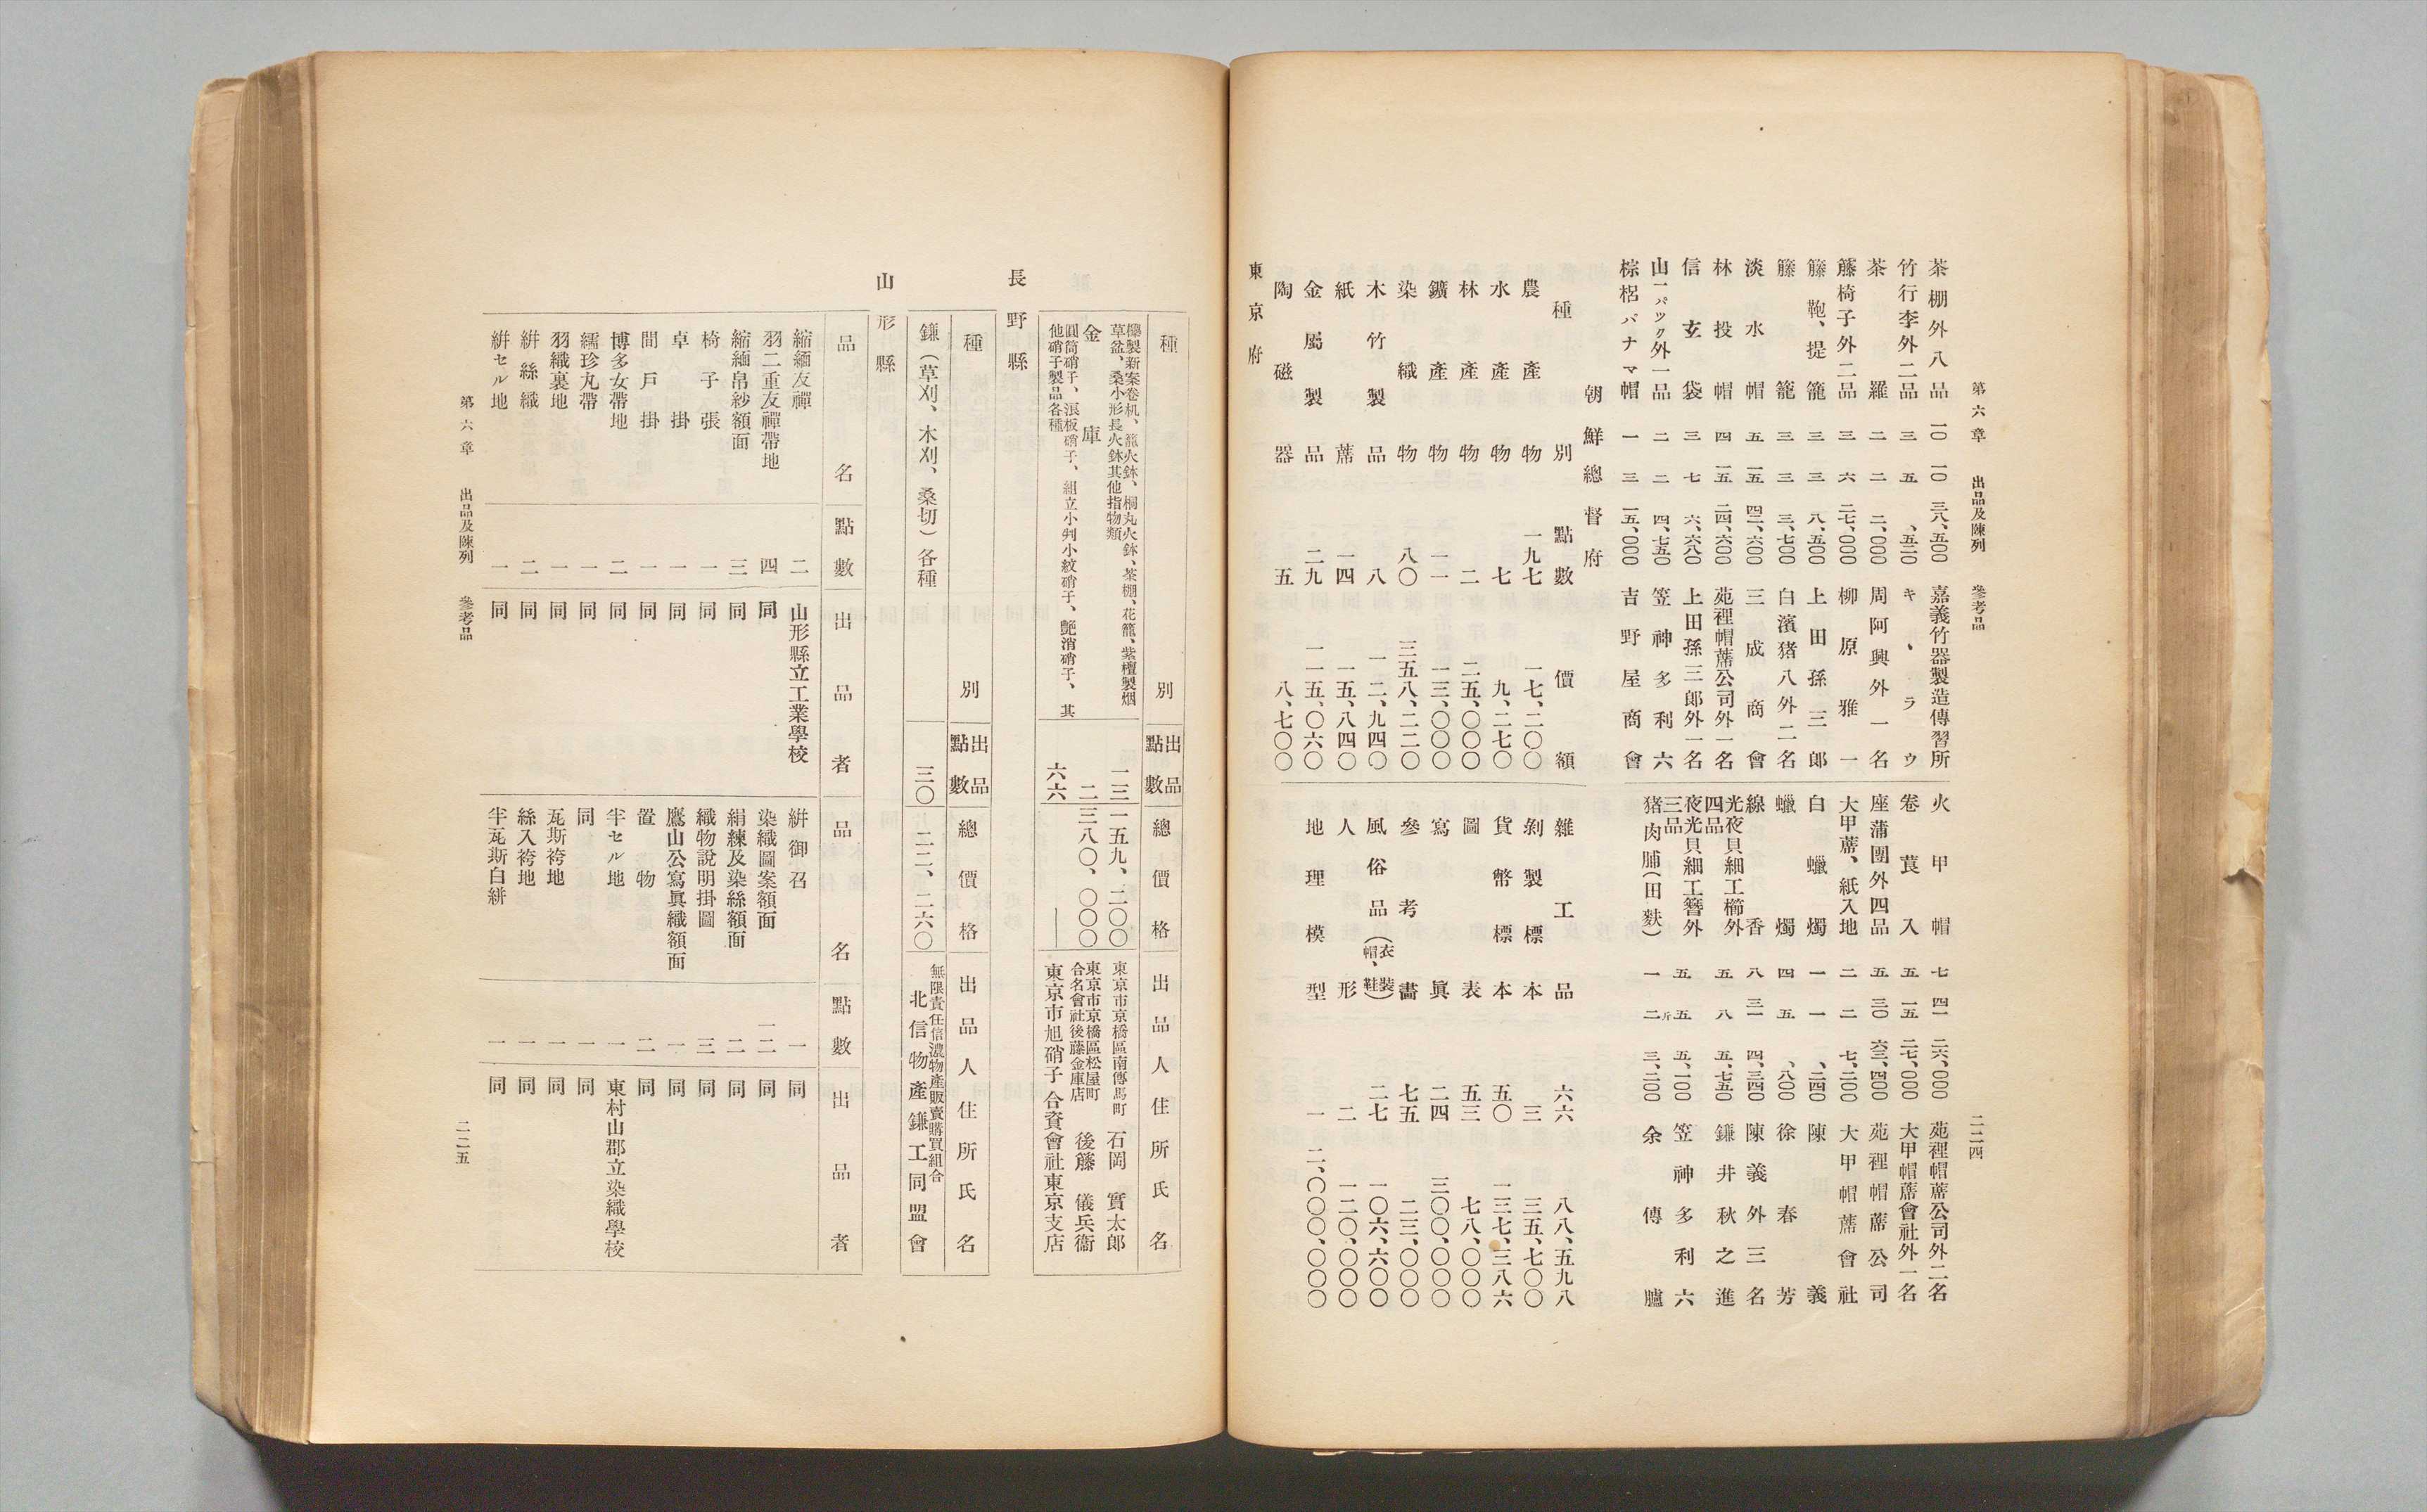 第六章 出品及陳列 參考品 二二四
茶棚外八品 一〇 一〇 三八、五〇〇 嘉義竹器製造傳習所
竹行李外二品 三 五 、五二〇 キ、ラウ
茶羅 二 二 二、〇〇〇 周阿興外一名
籐椅子外二品 三 六 二七、〇〇〇 柳原雅一
籐鞄、提籠 三 三 八、五〇〇 上田孫三郎
籐籠 三 三 三、七〇〇 白濱猪八外二名
淡水帽 五 一五 四二、六〇〇 三成商會
林投帽 四 一五 二四、六〇〇 苑裡帽蓆公司外一名
信玄袋 三 七 六、六八〇 上田孫三郎外一名
山一パック外一品 二 二 四、七五〇 笠神多利六
棕梠パナマ帽 一 三 一五、〇〇〇 吉野屋商會
火甲帽 七 四一 二六、〇〇〇 苑裡帽蓆公司外二名
卷莨入 五 一五 二七、〇〇〇 大甲帽蓆會社外一名
座蒲團外四品 五 三〇 六三、四〇〇 苑裡帽蓆公司
大甲蓆、紙入地 二 二 七、二〇〇 大甲帽蓆會社
白蠟燭 一 一 、二四〇 陳義
蠟燭 四 五 、八〇〇 徐春芳
線香 八 三一 四、三四〇 陳義外三名
光夜貝細工櫛外四品 五 八 五、七五〇 鎌井秋之進
夜光貝細工簪外三品 五 五 五、一〇〇 笠神多利六
猪肉脯(田麩) 一 二斤 三、二〇〇 余傳臚
朝鮮總督府
種別 點數 價額
農產物 一九七 一七、二〇〇
水產物 七 九、二七〇
林產物 二 二五、〇〇〇
鑛產物 一一 一三、〇〇〇
染織物 八〇 三五八、二二〇
木竹製品 八 一二、九四〇
紙蓆 一四 一五、八四〇
金屬製品 二九 一一五、〇六〇
陶磁器 五 八、七〇〇
雜工品 六六 八八、五九八
剝製標本 三 三五、七〇〇
貨幣標本 五〇 一三七、三八六
圖表 五三 七八、〇〇〇
寫眞 二四 三〇〇、〇〇〇
參考書 七五 二三、〇〇〇
風俗品(衣裝帽、鞋) 二七 一〇六、六〇〇
人形 二 一二〇、〇〇〇
地理模型 一 二、〇〇〇、〇〇〇
東京府
種別 出品點數 總價格 出品人住所氏名
欅製新案卷机、籠火鉢、桐丸火鉢、茶棚、花籠、紫檀製烟草盆、桑小形長火鉢其他指物類 二三 一五九、二〇〇 東京市京橋區南傳馬町 石岡實太郎
金庫 二 三八〇、〇〇〇 東京市京橋區松屋町合名會社後藤金庫店 後籐儀兵衞
圓筒硝子、漲板硝子、組立小判小紋硝子、艶消硝子、其他硝子製品各種 六六 —— 東京市旭硝子合資會社東京支店
長野縣
種別 出品點數 總價格 出品人住所氏名
鎌(草刈、木刈、桑切)各種 三〇 二二、二六〇 無限責任信濃物產販賣購買組合 北信物產鎌工同盟會
山形縣
品名 點數 出品者 品名 點數 出品者
縮緬友禪 二 山形縣立工業學校
羽二重友禪帶地 四 同
縮緬帛紗額面 三 同
椅子張 一 同
卓掛 一 同
間戶掛 一 同
博多女帶地 二 同
繻珍丸帶 一 同
羽織裏地 一 同
絣絲織 二 同
絣セル地 一 同
絣御召 一 同
染織圖案額面 一二 同
絹練及染絲額面 二 同
織物說明掛圖 三 同
鷹山公寫眞織額面 一 同
置物 二 同
半セル地 一 東村山郡立染織學校
同 一 同
瓦斯袴地 一 同
絲入袴地 一 同
半瓦斯白絣 一 同
第六章 出品及陳列 參考品 二二五